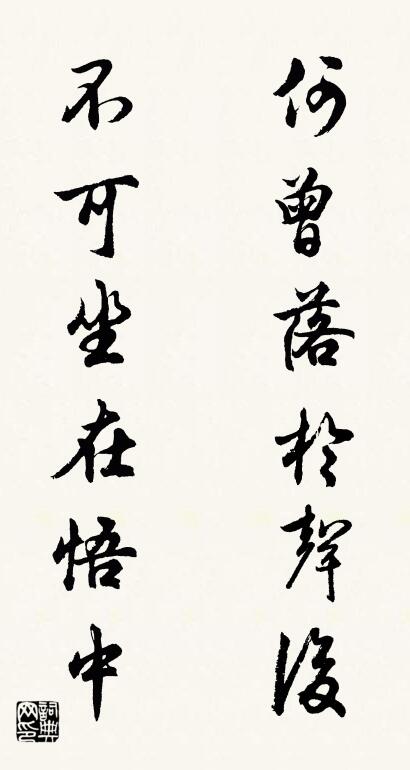 何曾落於聲後
不可坐在悟中
詞典
网印